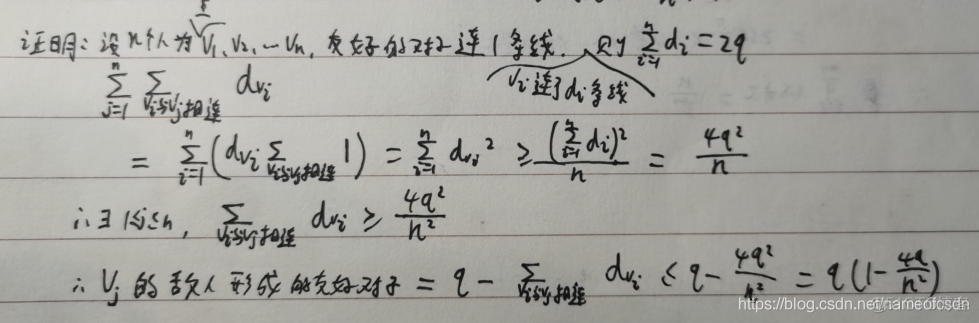 证明：设n个人为V₁、V₂、…Vₙ，友好的对子连1条线．则 \sum_{i=1}^{n} d_i = 2q
Vᵢ连了dᵢ条线
\sum_{j=1}^{n} \sum_{V_i与V_j相连} d_{v_i}
= \sum_{i=1}^{n} (d_{v_i} \sum_{V_i与V_j相连} 1) = \sum_{i=1}^{n} d_{v_i}^2 ≥ \frac{(\sum_{i=1}^{n} d_i)^2}{n} = \frac{4q^2}{n}
∴ ∃ 1≤j≤n, \sum_{V_i与V_j相连} d_{v_i} ≥ \frac{4q^2}{n^2}
∴ Vⱼ 的敌人形成的友好对子 = q - \sum_{V_i与V_j相连} d_{v_i} ≤ q - \frac{4q^2}{n^2} = q(1 - \frac{4q}{n^2})
https://blog.csdn.net/nameofcsdn